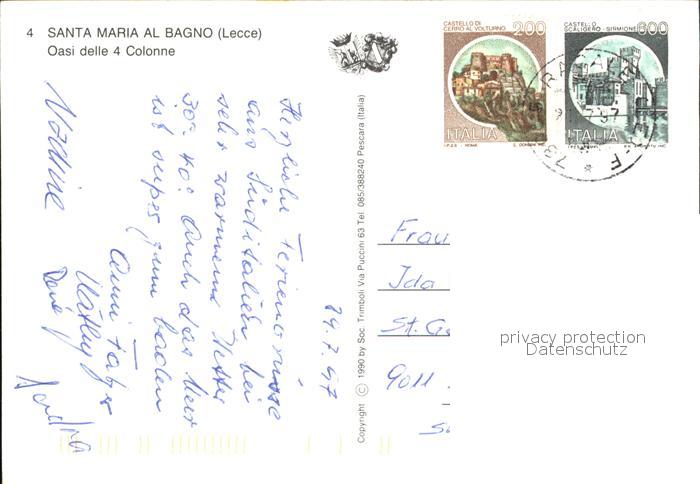 4 SANTA MARIA AL BAGNO (Lecce)
Oasi delle 4 Colonne
CASTELLO DI
CERRO AL VOLTURNO 200
ITALIA
I.P.Z.S. - ROMA
CASTELLO
SCALIGERO - SIRMIONE 600
ITALIA
24.7.97
Herzliche Feriengrüsse
aus Süditalien bei
sehr warmem Wetter
30°-40° Auch das Meer
ist super zum baden
Nadine
Sandra
Copyright © 1990 by Soc. Trimboli Via Puccini 63 Tel. 085/388240 Pescara (Italia)
Frau
Ida
St. Ga
9011
privacy protection
Datenschutz